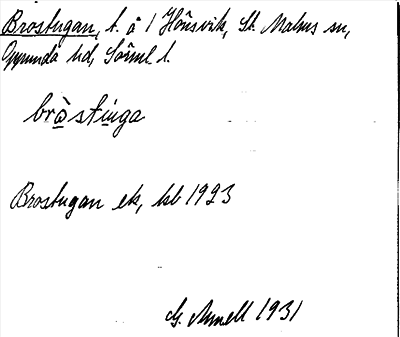 Brostugan, t. å 1 Hönsvik, St. Malms sn,
Oppunda hd, Sörml l.
bròstinga
Brostugan ek, kb 1923
G. Annell 1931